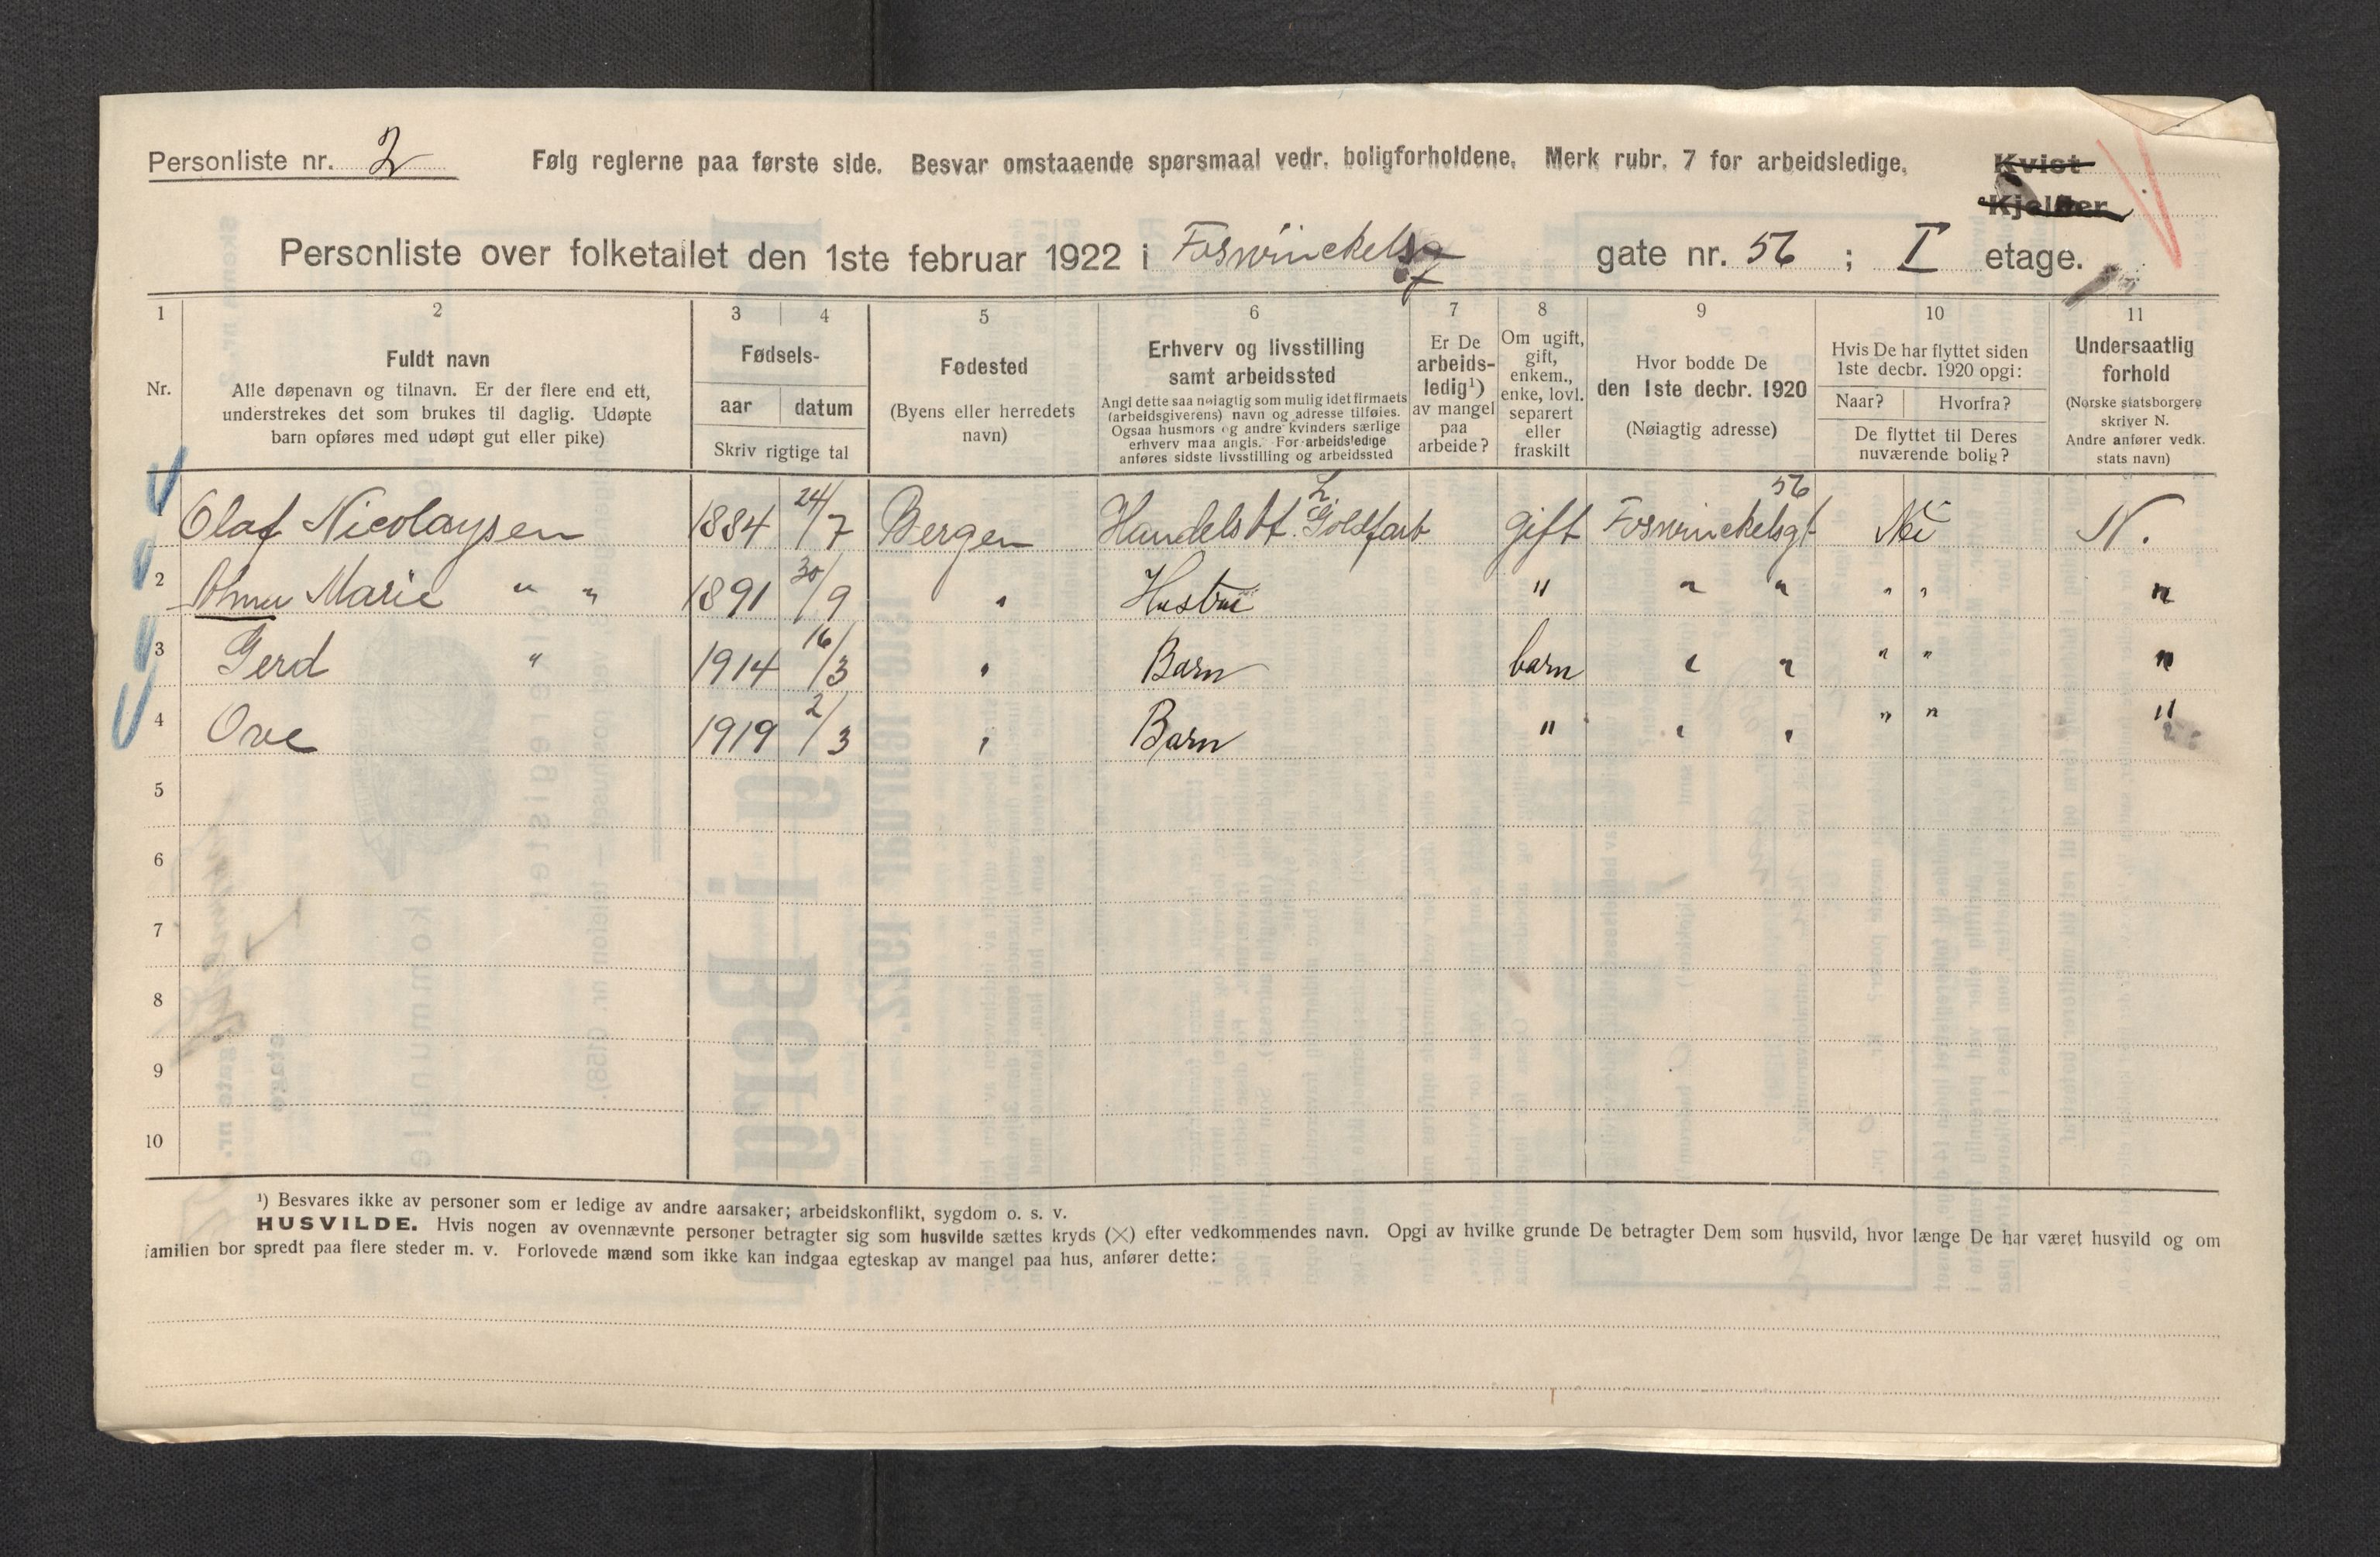 Personliste nr. 2 Følg reglerne paa første side. Besvar omstaaende spørsmaal vedr. boligforholdene. Merk rubr. 7 for arbeidsledige. Kvist
Kjelder
Personliste over folketallet den 1ste februar 1922 i Foswinckelsg gate nr. 56 ; I etage.
1 2 3 4 5 6 7 8 9 10 11
Nr.
Fuldt navn
Alle døpenavn og tilnavn. Er der flere end ett,
understrekes det som brukes til daglig. Udøpte
barn opføres med udøpt gut eller pike)
Fødsels-
aar datum
Skriv rigtige tal
Fødested
(Byens eller herredets
navn)
Erhverv og livsstilling
samt arbeidssted
Angi dette saa nøiagtig som mulig idet firmaets
(arbeidsgiverens) navn og adresse tilføies.
Ogsaa husmors og andre kvinders særlige
erhverv maa angis. For arbeidsledige
anføres sidste livsstilling og arbeidssted
Er De
arbeids-
ledig¹)
av mangel
paa
arbeide?
Om ugift,
gift,
enkem.,
enke, lovl.
separert
eller
fraskilt
Hvor bodde De
den 1ste decbr. 1920
(Nøiagtig adresse)
Hvis De har flyttet siden
1ste decbr. 1920 opgi:
Naar? Hvorfra?
De flyttet til Deres
nuværende bolig?
Undersaatlig
forhold
(Norske statsborgere
skriver N.
Andre anfører vedk.
stats navn)
1 Olaf Nicolaysen 1884 24/7 Bergen Handels bt. L. Goldfarb gift Foswinckelsgt 56 Nei N.
2 Marie " " 1891 30/9 " Hustru " " " " " "
3 Gerd " 1914 16/3 " Barn barn " " " " "
4 Ove 1919 2/3 " Barn " " " " " "
5
6
7
8
9
10
¹) Besvares ikke av personer som er ledige av andre aarsaker; arbeidskonflikt, sygdom o. s. v.
HUSVILDE. Hvis nogen av ovennævnte personer betragter sig som husvilde sættes kryds (X) efter vedkommendes navn. Opgi av hvilke grunde De betragter Dem som husvild, hvor længe De har været husvild og om
familien bor spredt paa flere steder m. v. Forlovede mænd som ikke kan indgaa egteskap av mangel paa hus, anfører dette: